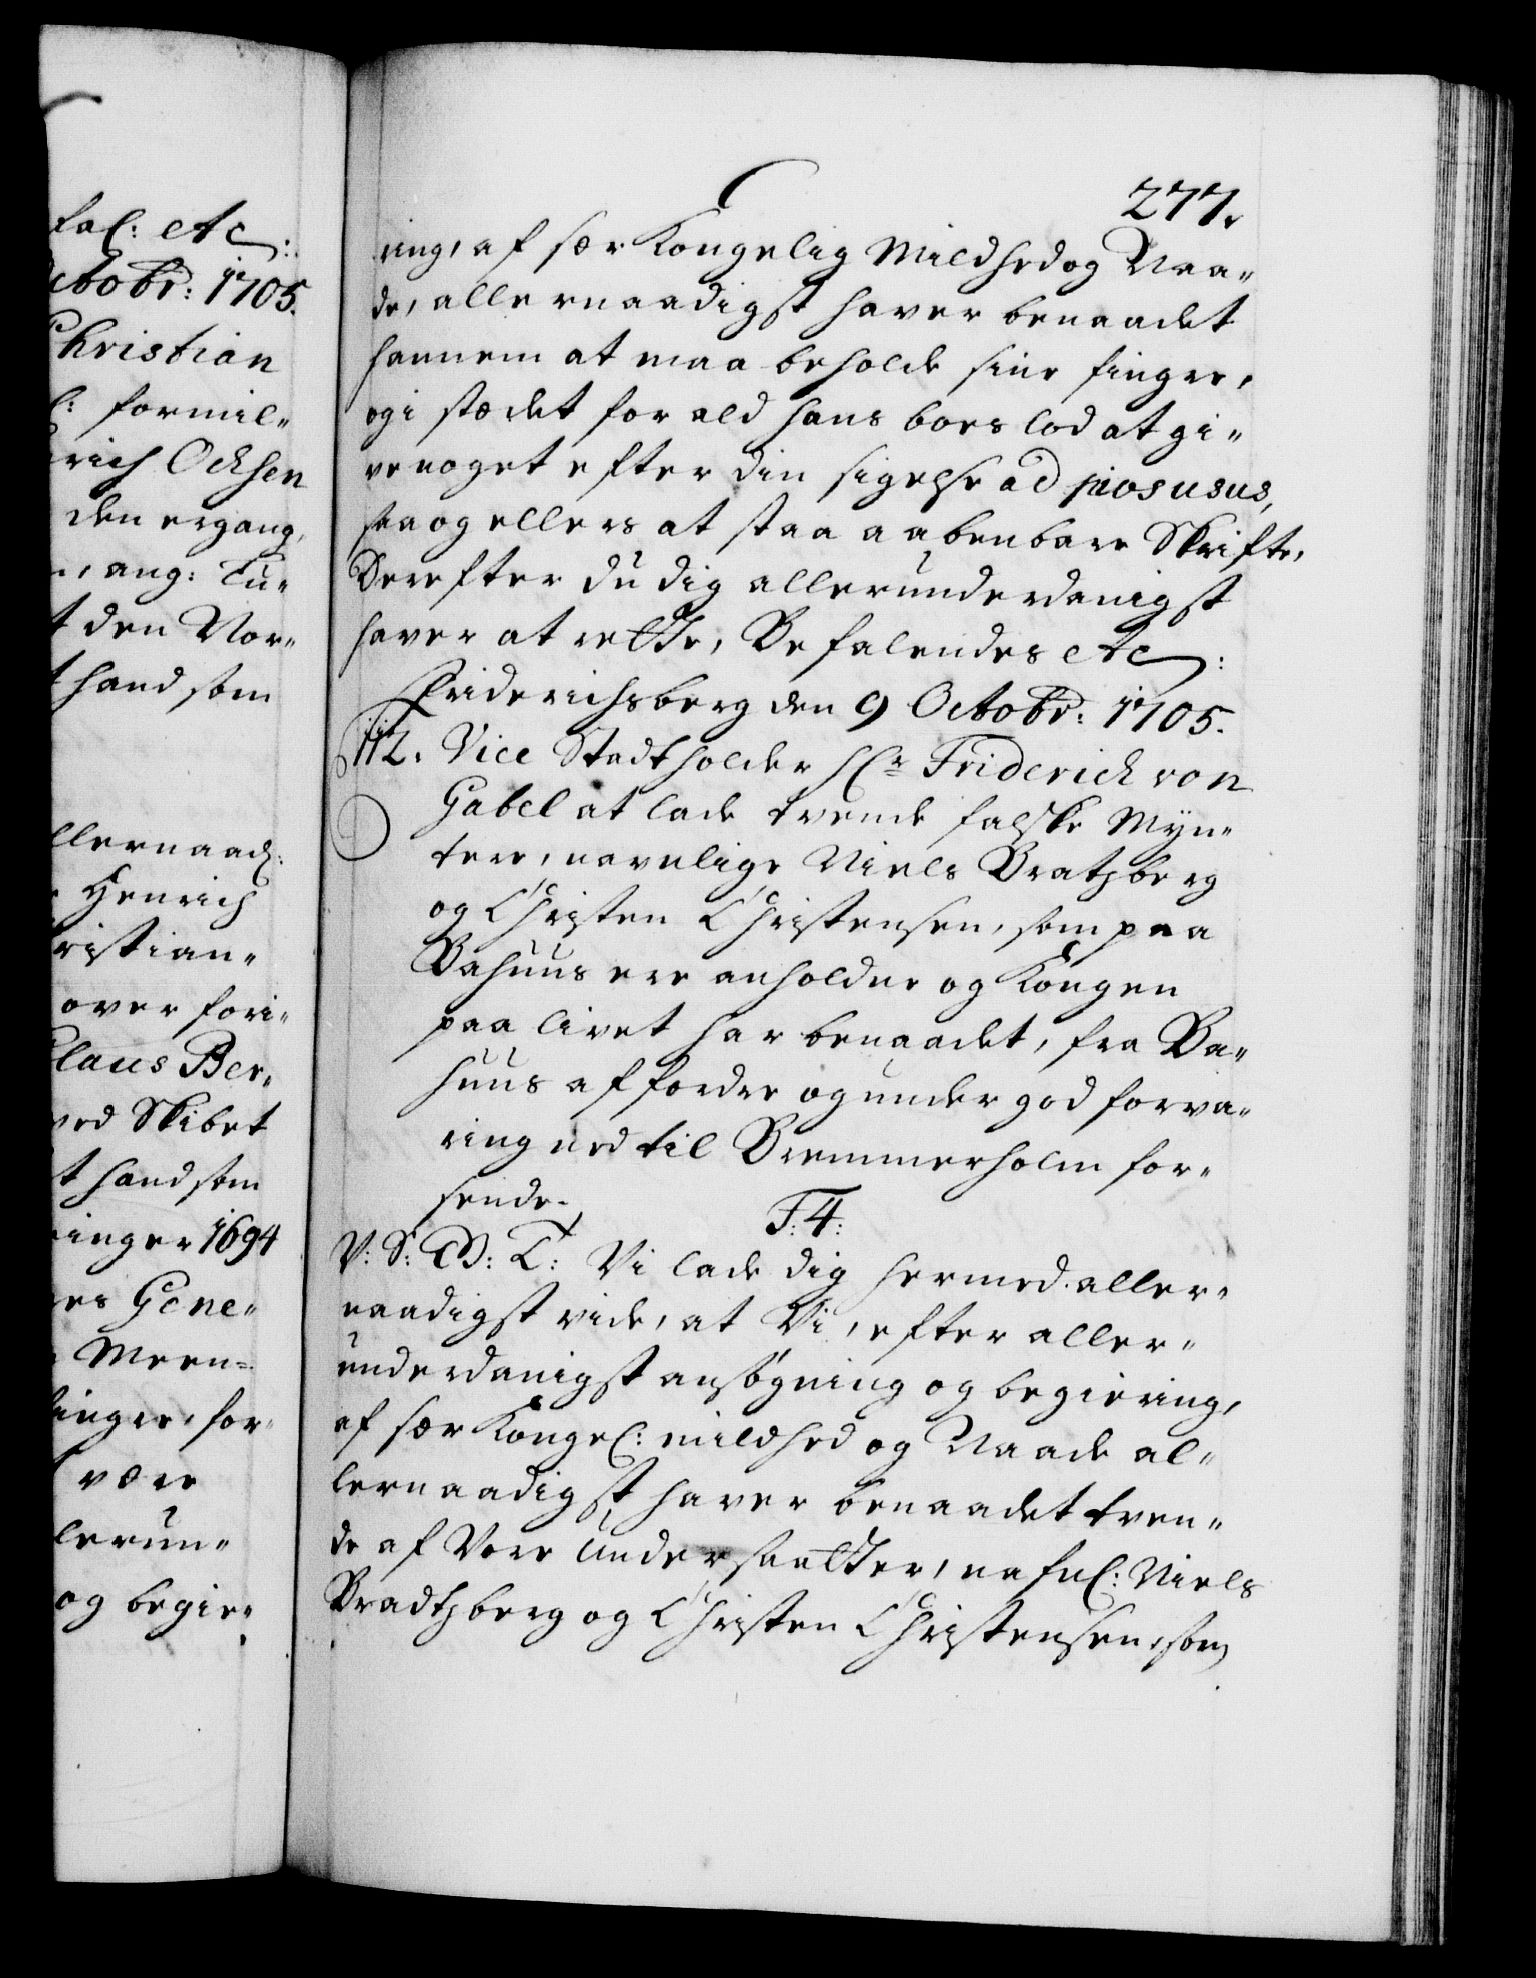 fal: etc:
ctobr: 1705.
Christian
l: formil„
rich Ochsen
den ergang,
, ang: Tu„
t den Nor„
t hand som
llernaad:
Henrich
ristian„
over fori„
Claus Ber„
ved Skibet
t hand som
inger 1694
es Gene„
Meen„
finger, for„
være
lerun„
og begie„
277.
ring, af sær Kongelig Mildhed og Naa„
de, allernaadigst haver benaadet
hannem at maa beholde sine finger,
og i stædet for ald hans boes lod at gi„
ve noget efter din sigelse ad pios usus,
saa og ellers at staa aabenbare Skrifte,
Derefter du dig allerunderdanigst
haver at rette, Befalendes etc:
Friderichsberg den 9 Octobr: 1705.
112. Vice Stadtholder Hr Friderich von
Gabel at lade tvende falske Myn„
tere, navnlige Niels Bratzberg
og Christen Christensen, som paa
Bahuus ere anholdne og Kongen
paa livet har benaadet, fra Ba„
huus affordre og under god forva„
ring ned til Bremmerholm for„
sende.
F: 4:
V: S: G: T: Vi lade dig hermed aller„
naadigst vide, at Vi, efter aller„
underdanigst ansøgning og begiering,
af sær Kongel: mildhed og Naade al„
lernaadigst haver benaadet tven„
de af Vore Undersaatter, nafnl: Niels
Bradtzberg og Christen Christensen, som